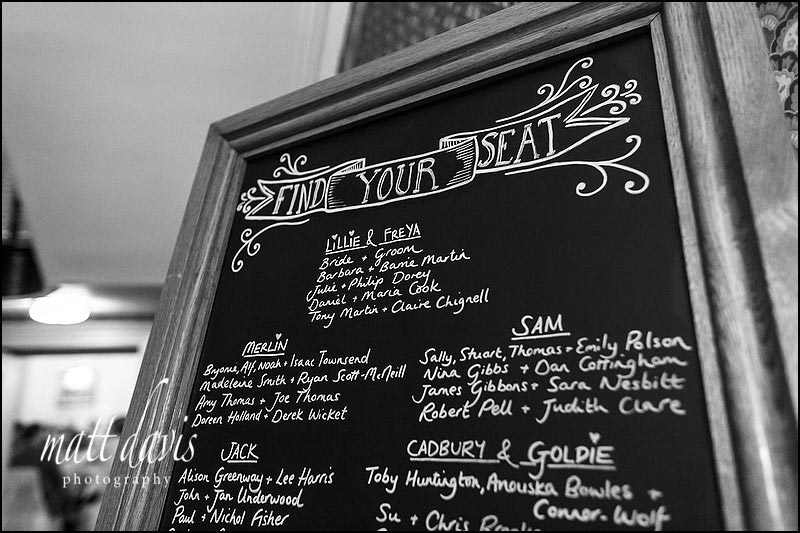 FIND YOUR SEAT
LILLIE & FREYA
Bride + Groom
Barbara + Barrie Martin
Julie + Philip Dorey
Daniel + Maria Cook
Tony Martin + Claire Chignell
MERLIN
Bryonie, Alf, Noah + Isaac Townsend
Madeleine Smith + Ryan Scott-McNeill
Amy Thomas + Joe Thomas
Doreen Holland + Derek Wicket
SAM
Sally, Stuart, Thomas + Emily Polson
Nina Gibbs + Dan Cottingham
James Gibbons + Sara Nesbitt
Robert Pell + Judith Clare
JACK
Alison Greenway + Lee Harris
John + Jan Underwood
Paul + Nichol Fisher
CADBURY & GOLDIE
Toby Huntington, Anouska Bowles +
Connor-Wolf
Su + Chris
matt davis
photography